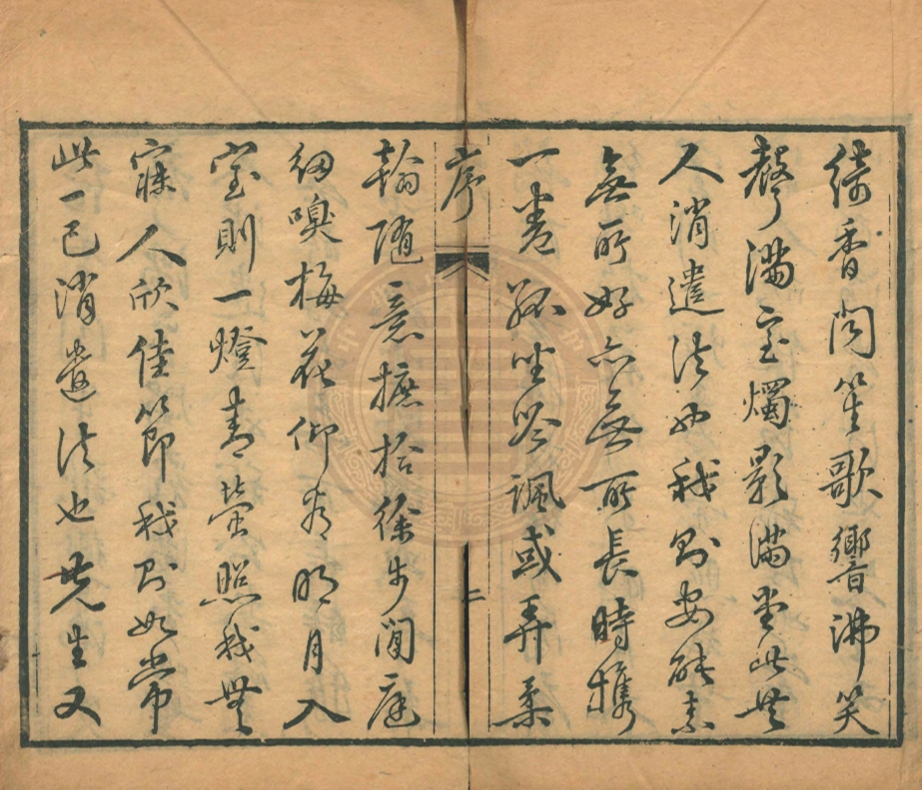 綺香閣笙歌響沸笑
聲滿室燭影滿堂此世
人消遣法我則安能素
無所好亦無所長時攜
一卷孤坐吟諷或弄柔
序
二
翰隨意摭拾徐步閒庭
細嗅梅花仰看明月入
室則一燈青螢照我無
寐人欣佳節我則如常
此一己消遣法也先生又